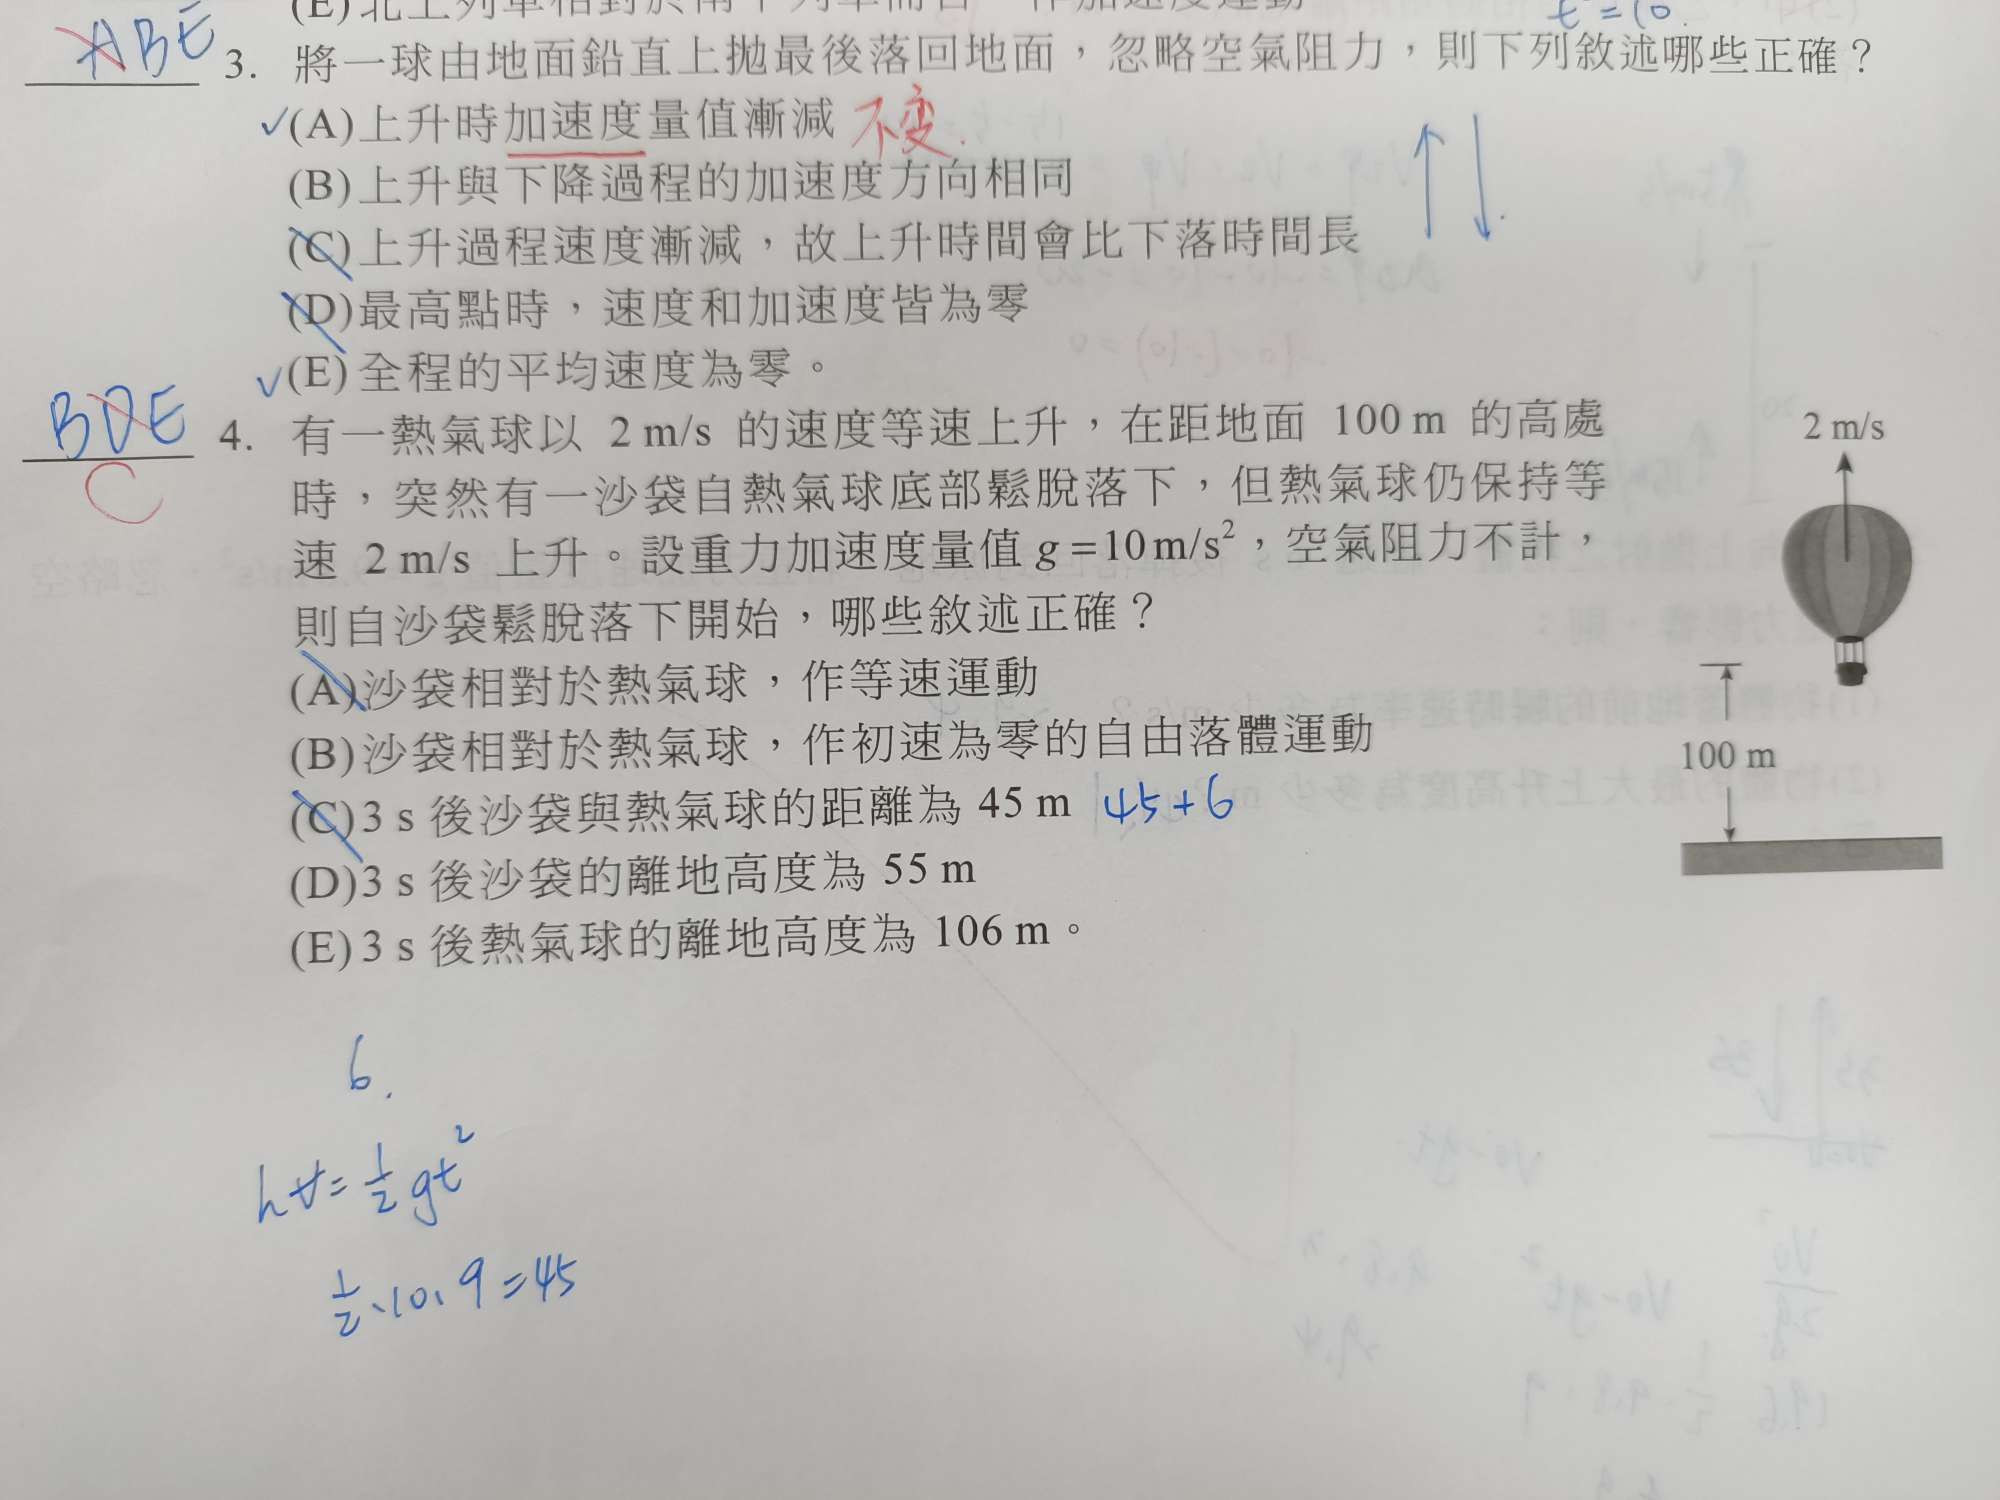 t²=10.
ABE
3. 將一球由地面鉛直上拋最後落回地面，忽略空氣阻力，則下列敘述哪些正確？
✓(A)上升時加速度量值漸減 不变.
(B)上升與下降過程的加速度方向相同
(C)上升過程速度漸減，故上升時間會比下落時間長
(D)最高點時，速度和加速度皆為零
✓(E)全程的平均速度為零。
BDE
C
4. 有一熱氣球以 2 m/s 的速度等速上升，在距地面 100 m 的高處
時，突然有一沙袋自熱氣球底部鬆脫落下，但熱氣球仍保持等
速 2 m/s 上升。設重力加速度量值 g=10 m/s²，空氣阻力不計，
則自沙袋鬆脫落下開始，哪些敘述正確？
(A)沙袋相對於熱氣球，作等速運動
(B)沙袋相對於熱氣球，作初速為零的自由落體運動
(C)3 s 後沙袋與熱氣球的距離為 45 m 45+6
(D)3 s 後沙袋的離地高度為 55 m
(E)3 s 後熱氣球的離地高度為 106 m。
2 m/s
100 m
6.
=½gt²
½·10·9=45